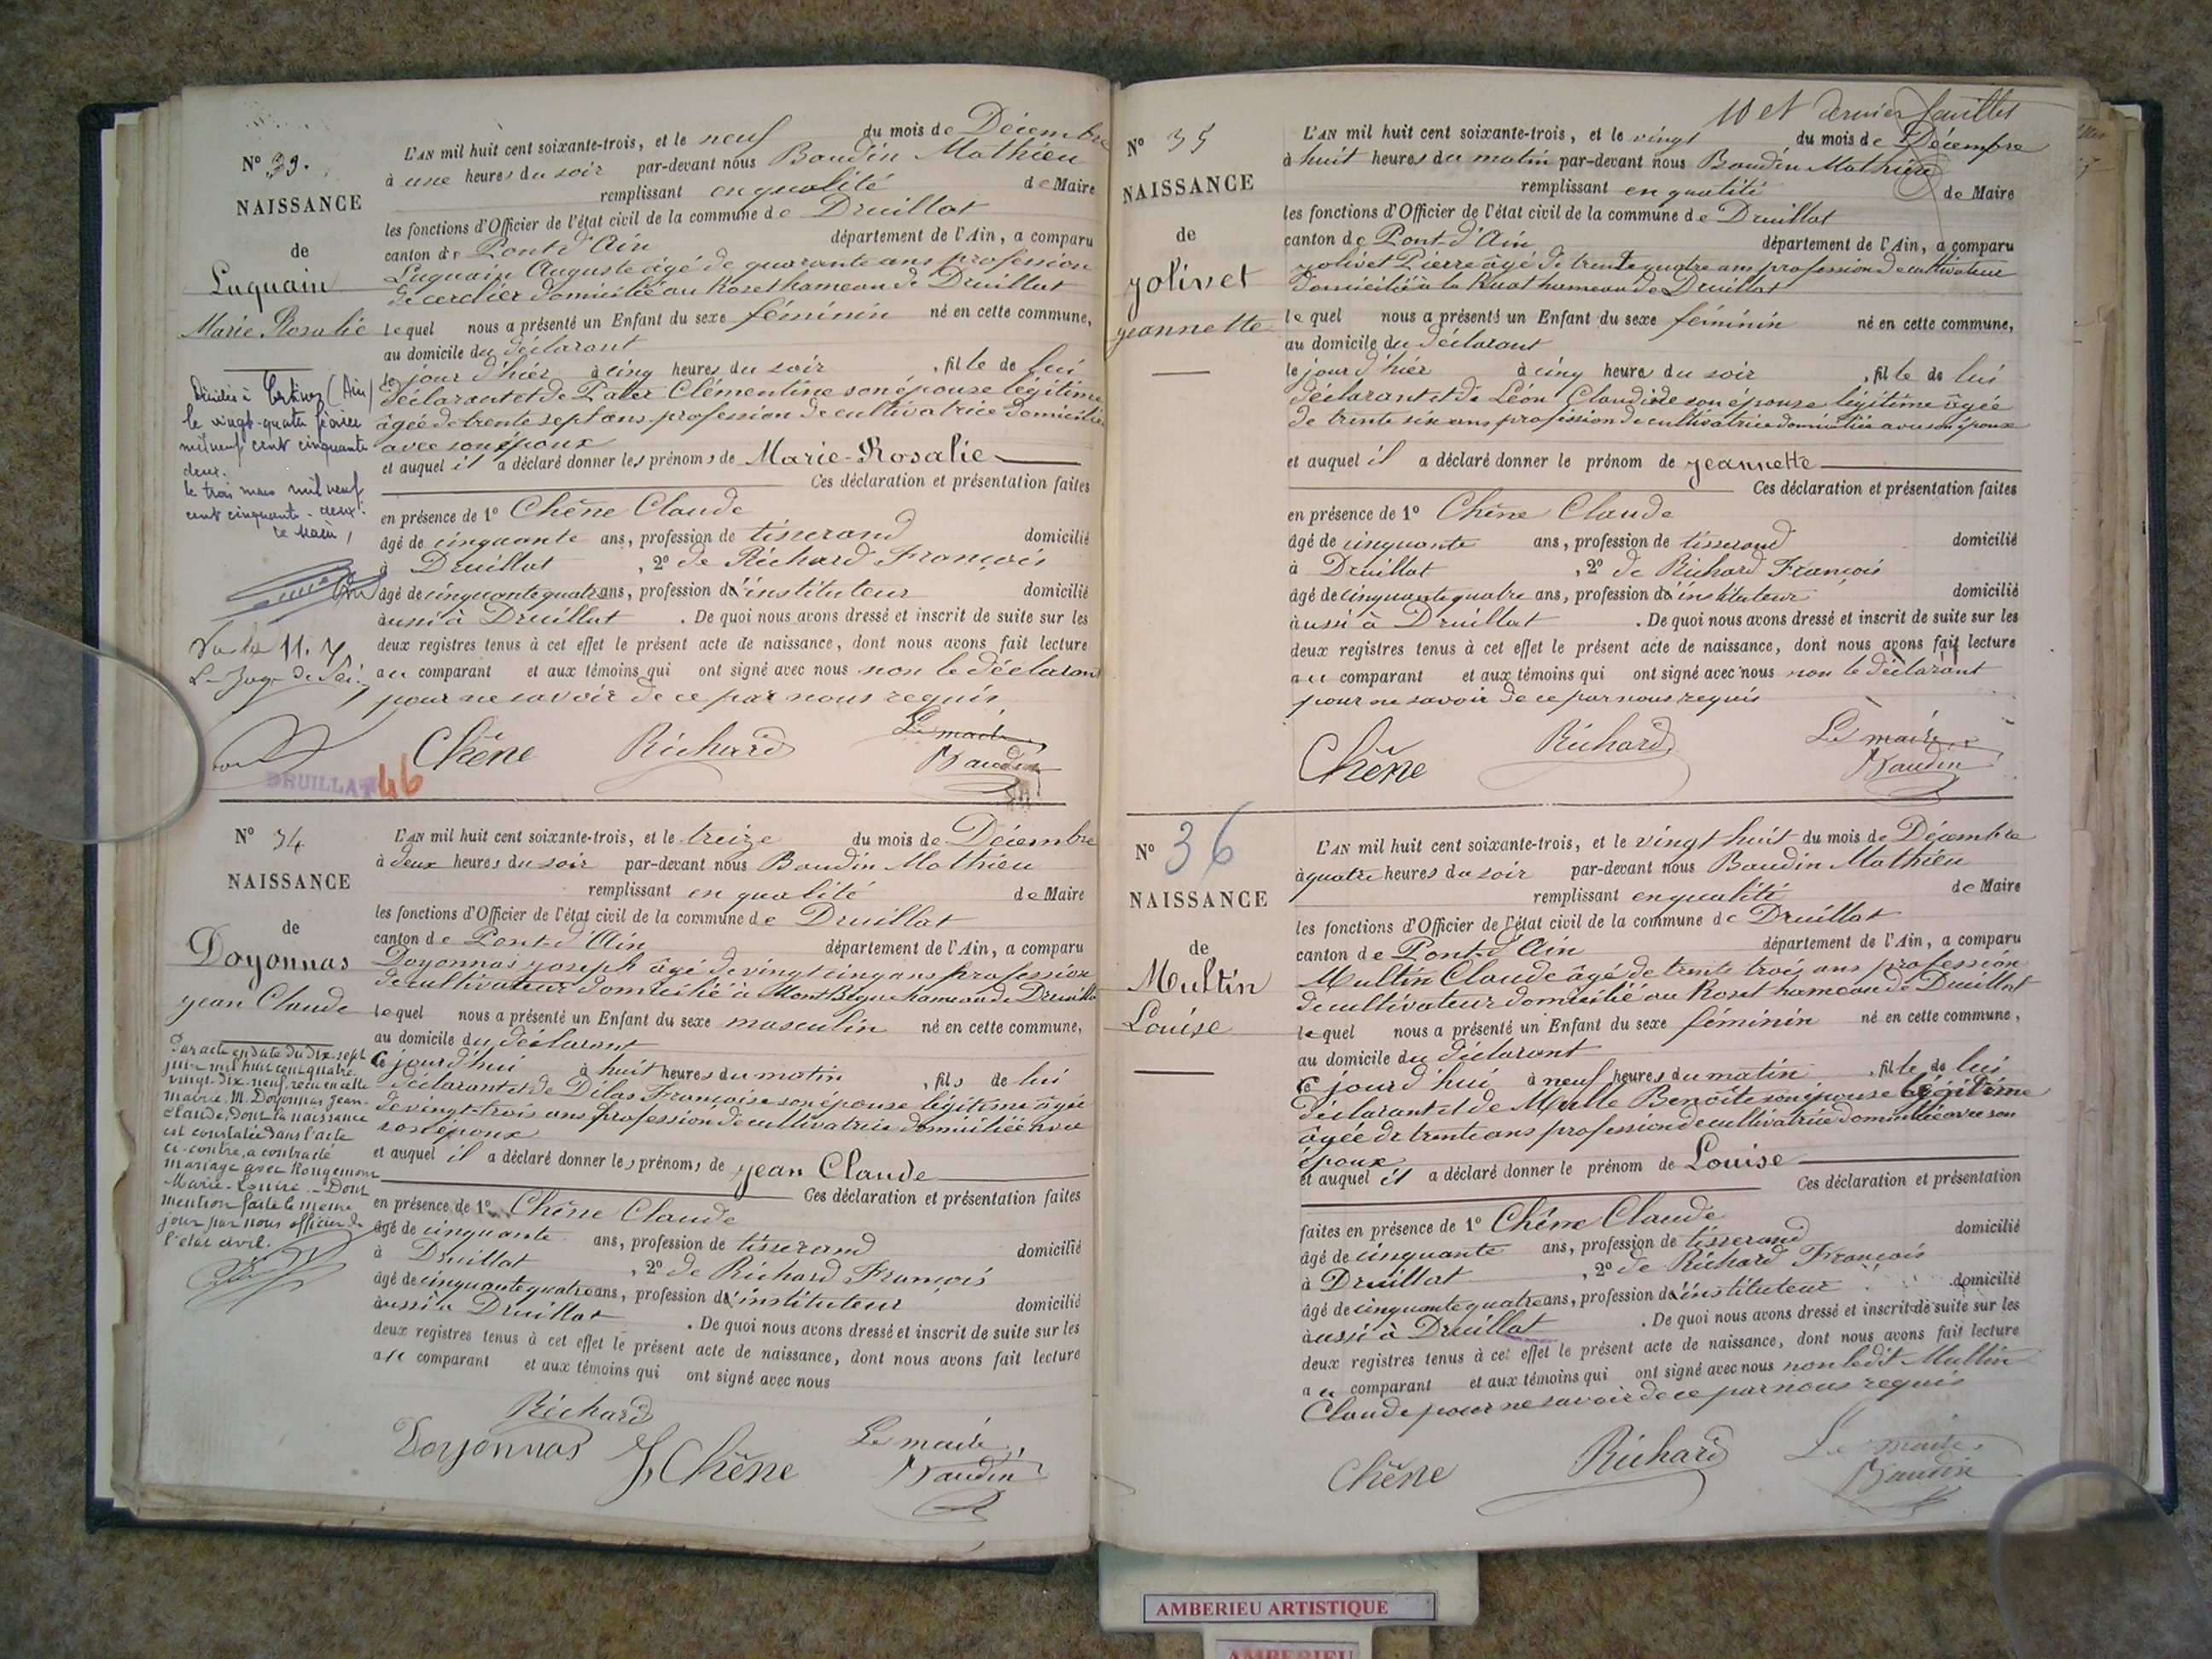 N° 33.
NAISSANCE
de
Luquain
Marie Rosalie
Décédée à (Ain)
le vingt-quatre février
mil neuf cent cinquante
deux.
le trois mars mil neuf
cent cinquante-deux.
Le Maire,
Vu le 11.
Le Juge de
DRUILLAT 46
L'AN mil huit cent soixante-trois, et le neuf du mois de Décembre
à une heures du soir par-devant nous Baudin Mathieu
remplissant en qualité de Maire
les fonctions d'Officier de l'état civil de la commune de Druillat
canton de Pont-d'Ain département de l'Ain, a comparu
Luquain Auguste âgé de quarante ans profession
de cerclier domicilié au Roset hameau de Druillat
lequel nous a présenté un Enfant du sexe féminin né en cette commune,
au domicile du déclarant
le jour d'hier à cinq heures du soir , fille de lui
déclarant et de Clémentine son épouse légitime
âgée de trente sept ans profession de cultivatrice domiciliée
avec son époux
et auquel il a déclaré donner les prénoms de Marie-Rosalie
Ces déclaration et présentation faites
en présence de 1° Chêne Claude
âgé de cinquante ans, profession de tisserand domicilié
à Druillat , 2° de Richard François
âgé de cinquante quatre ans, profession d'instituteur domicilié
aussi à Druillat . De quoi nous avons dressé et inscrit de suite sur les
deux registres tenus à cet effet le présent acte de naissance, dont nous avons fait lecture
au comparant et aux témoins qui ont signé avec nous non le déclarant
pour ne savoir de ce par nous requis
Chêne Richard Le maire,
Baudin
N° 34
NAISSANCE
de
Doyonnas
jean Claude
Par acte en date du dix-sept
juin mil huit cent quatre
vingt-dix-neuf, reçu en cette
mairie, M. Doyonnas Jean-
Claude, dont la naissance
est constatée dans l'acte
ci-contre, a contracté
mariage avec Rougemont
Marie-Louise. - Dont
mention faite le même
jour par nous officier de
l'état civil.
L'AN mil huit cent soixante-trois, et le treize du mois de Décembre
à deux heures du soir par-devant nous Baudin Mathieu
remplissant en qualité de Maire
les fonctions d'Officier de l'état civil de la commune de Druillat
canton de Pont-d'Ain département de l'Ain, a comparu
Doyonnas joseph âgé de vingt cinq ans profession
de cultivateur domicilié à hameau de Druillat
lequel nous a présenté un Enfant du sexe masculin né en cette commune,
au domicile du déclarant
ce jourd'hui à huit heures du matin , fils de lui
déclarant et de Délas Françoise son épouse légitime âgée
de vingt-trois ans profession de cultivatrice domiciliée avec
son époux
et auquel il a déclaré donner les prénoms de jean Claude
Ces déclaration et présentation faites
en présence de 1° Chêne Claude
âgé de cinquante ans, profession de tisserand domicilié
à Druillat , 2° de Richard François
âgé de cinquante quatre ans, profession d'instituteur domicilié
aussi à Druillat . De quoi nous avons dressé et inscrit de suite sur les
deux registres tenus à cet effet le présent acte de naissance, dont nous avons fait lecture
au comparant et aux témoins qui ont signé avec nous
Richard
Doyonnas Chêne Le maire,
Baudin
10 et dernier feuillet
N° 35
NAISSANCE
de
jolivet
jeannette
L'AN mil huit cent soixante-trois, et le vingt du mois de Décembre
à huit heures du matin par-devant nous Baudin Mathieu
remplissant en qualité de Maire
les fonctions d'Officier de l'état civil de la commune de Druillat
canton de Pont-d'Ain département de l'Ain, a comparu
jolivet Pierre âgé de trente quatre ans profession de cultivateur
domicilié à la Ruat hameau de Druillat
lequel nous a présenté un Enfant du sexe féminin né en cette commune,
au domicile du déclarant
le jour d'hier à cinq heures du soir , fille de lui
déclarant et de Léon Claudine son épouse légitime âgée
de trente six ans profession de cultivatrice domiciliée avec son époux
et auquel il a déclaré donner le prénom de jeannette
Ces déclaration et présentation faites
en présence de 1° Chêne Claude
âgé de cinquante ans, profession de tisserand domicilié
à Druillat , 2° de Richard François
âgé de cinquante quatre ans, profession d'instituteur domicilié
aussi à Druillat . De quoi nous avons dressé et inscrit de suite sur les
deux registres tenus à cet effet le présent acte de naissance, dont nous avons fait lecture
au comparant et aux témoins qui ont signé avec nous non le déclarant
pour ne savoir de ce par nous requis
Chêne Richard Le maire,
Baudin
N° 36
NAISSANCE
de
Multin
Louise
L'AN mil huit cent soixante-trois, et le vingt huit du mois de Décembre
à quatre heures du soir par-devant nous Baudin Mathieu
remplissant en qualité de Maire
les fonctions d'Officier de l'état civil de la commune de Druillat
canton de Pont-d'Ain département de l'Ain, a comparu
Multin Claude âgé de trente trois ans profession
de cultivateur domicilié au Roset hameau de Druillat
lequel nous a présenté un Enfant du sexe féminin né en cette commune,
au domicile du déclarant
ce jourd'hui à neuf heures du matin , fille de lui
déclarant et de Benoîte son épouse légitime
âgée de trente ans profession de cultivatrice domiciliée avec son
époux
et auquel il a déclaré donner le prénom de Louise
Ces déclaration et présentation
faites en présence de 1° Chêne Claude
âgé de cinquante ans, profession de tisserand domicilié
à Druillat , 2° de Richard François
âgé de cinquante quatre ans, profession d'instituteur domicilié
aussi à Druillat . De quoi nous avons dressé et inscrit de suite sur les
deux registres tenus à cet effet le présent acte de naissance, dont nous avons fait lecture
au comparant et aux témoins qui ont signé avec nous non ledit Multin
Claude pour ne savoir de ce par nous requis
Chêne Richard Le maire,
Baudin
AMBERIEU ARTISTIQUE
AMBERIEU